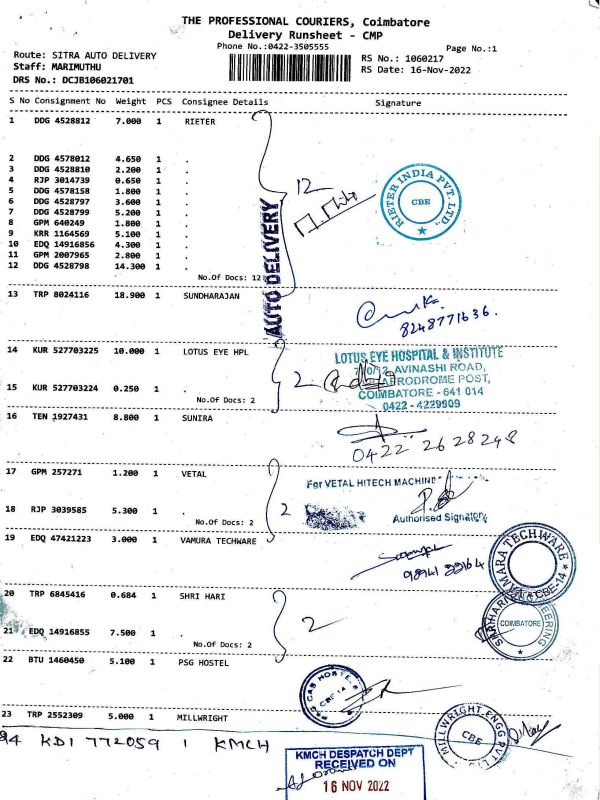 THE PROFESSIONAL COURIERS, Coimbatore
Delivery Runsheet - CMP
Phone No.:0422-3505555
Page No.:1
Route: SITRA AUTO DELIVERY
RS No.: 1060217
Staff: MARIMUTHU
RS Date: 16-Nov-2022
DRS No.: DCJB106021701
S No Consignment No Weight PCS Consignee Details Signature
1 DDG 4528812 7.000 1 RIETER
2 DDG 4578012 4.650 1 .
3 DDG 4528810 2.200 1 .
4 RJP 3014739 0.650 1 .
5 DDG 4578158 1.800 1 .
6 DDG 4528797 3.600 1 .
7 DDG 4528799 5.200 1 .
8 GPM 640249 1.800 1 .
9 KRR 1164569 5.100 1 .
10 EDQ 14916856 4.300 1 .
11 GPM 2007965 2.800 1 .
12 DDG 4528798 14.300 1 .
No.Of Docs: 12
AUTO DELIVERY
12
RIETER INDIA PVT. LTD.,
CBE
13 TRP 8024116 18.900 1 SUNDHARAJAN
8248771636.
14 KUR 527703225 10.000 1 LOTUS EYE HPL
15 KUR 527703224 0.250 1 .
No.Of Docs: 2
2
LOTUS EYE HOSPITAL & INSTITUTE
AVINASHI ROAD,
AERODROME POST,
COIMBATORE - 641 014
0422 - 4229909
16 TEN 1927431 8.800 1 SUNIRA
0422 2628248
17 GPM 257271 1.200 1 VETAL
18 RJP 3039585 5.300 1 .
No.Of Docs: 2
2
For VETAL HITECH MACHINE
Authorised Signatory
19 EDQ 47421223 3.000 1 VAMURA TECHWARE
TECHWARE
CBE-14
20 TRP 6845416 0.684 1 SHRI HARI
21 EDQ 14916855 7.500 1 .
No.Of Docs: 2
2
COIMBATORE
22 BTU 1460450 5.100 1 PSG HOSTEL
CBE 14
23 TRP 2552309 5.000 1 MILLWRIGHT
MILLWRIGHT ENGG PVT LTD
CBE
KDI 772059 1 KMCH
KMCH DESPATCH DEPT
RECEIVED ON
16 NOV 2022